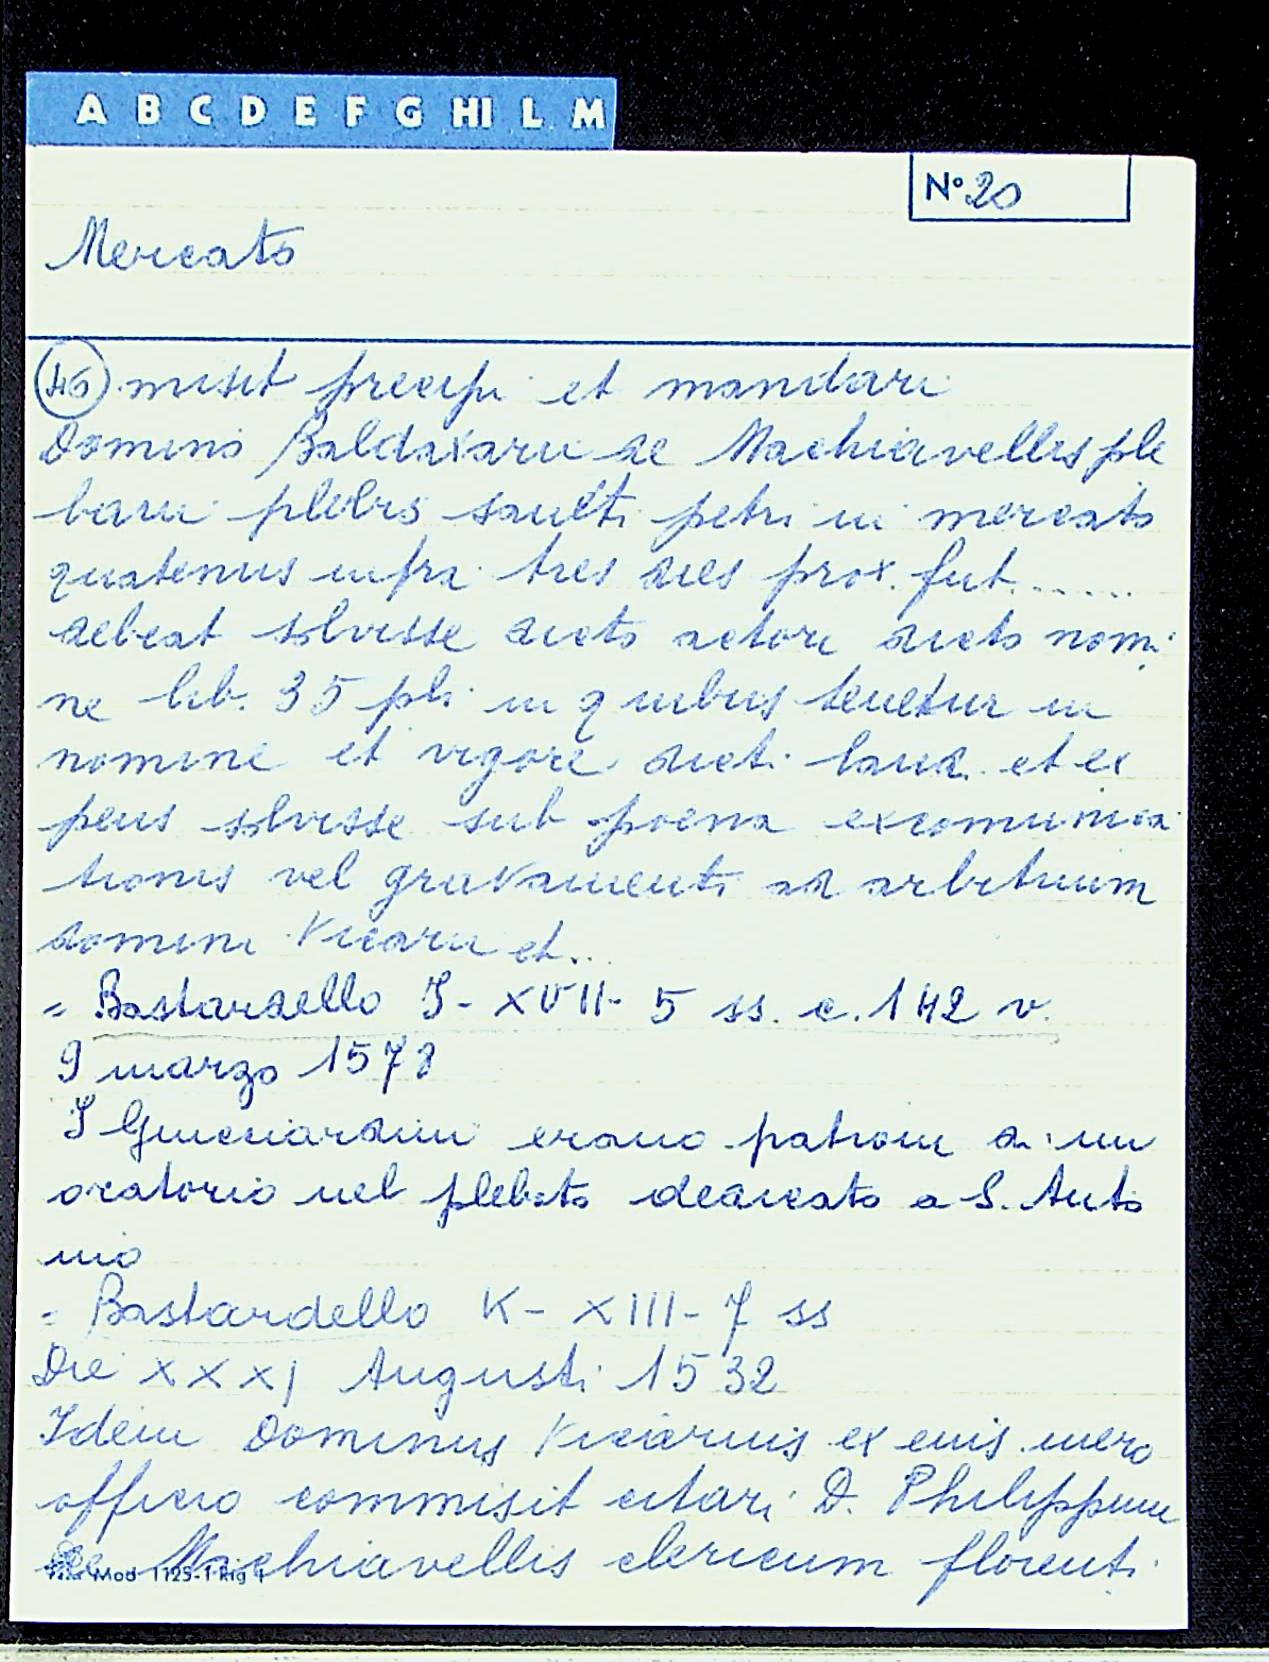 A B C D E F G HI L M
N° 20
Mercato
46) misit precipi et mandari
Domino Baldaxarri de Machiavellis ple
bano plebis sancti petri in mercato
quatenus infra tres dies prox. fut......
debeat solvisse dicto actori dicto nomi
ne lib. 35 pli. in quibus tenetur in
nomine et vigore dicti laud. et ex
pens solvisse sub poena excomunica
tionis vel gravamenti ad arbitrium
domini Vicarii et...
= Bastardello I - XVII - 5 ss. c. 142 v.
9 marzo 1578
I Guicciardini erano patroni di un
oratorio nel plebato dedicato a S. Anto
nio
= Bastardello K - XIII - 7 ss
Die XXXI Augusti 1532
Idem Dominus Vicarius ex eius mero
officio commisit citari D. Philippum
de Machiavellis clericum florenti
Mod 1125-1 Rig 1